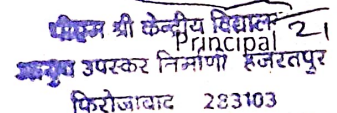 पीएम श्री केन्द्रीय विद्यालय 21
Principal
आयुध उपस्कर निर्माणी हजरतपुर
फिरोजाबाद 283103